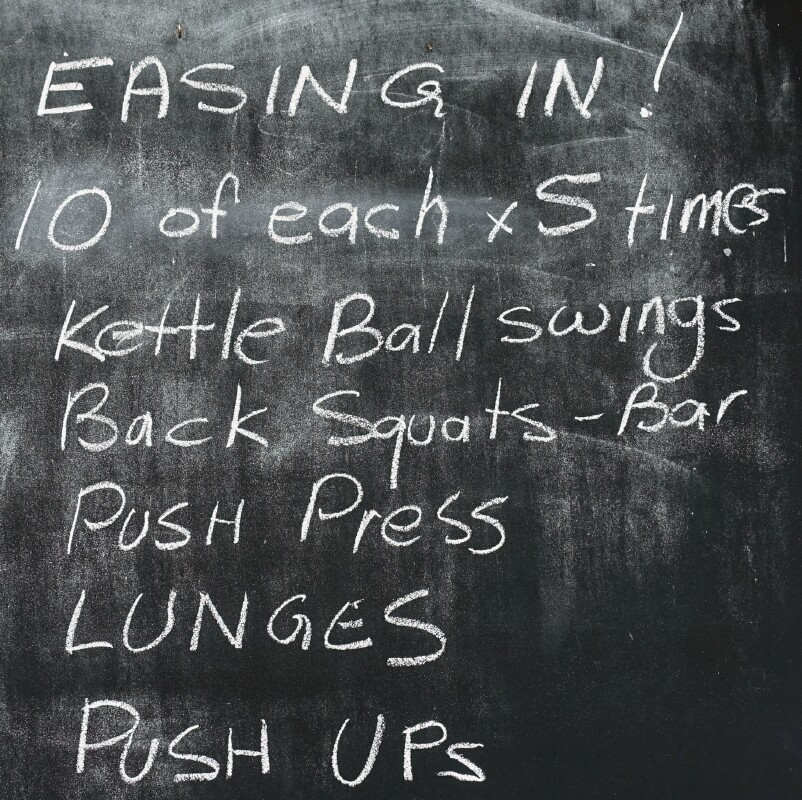 EASING IN!
10 of each x 5 times
Kettle Ball swings
Back Squats - Bar
PUSH Press
LUNGES
PUSH UPs